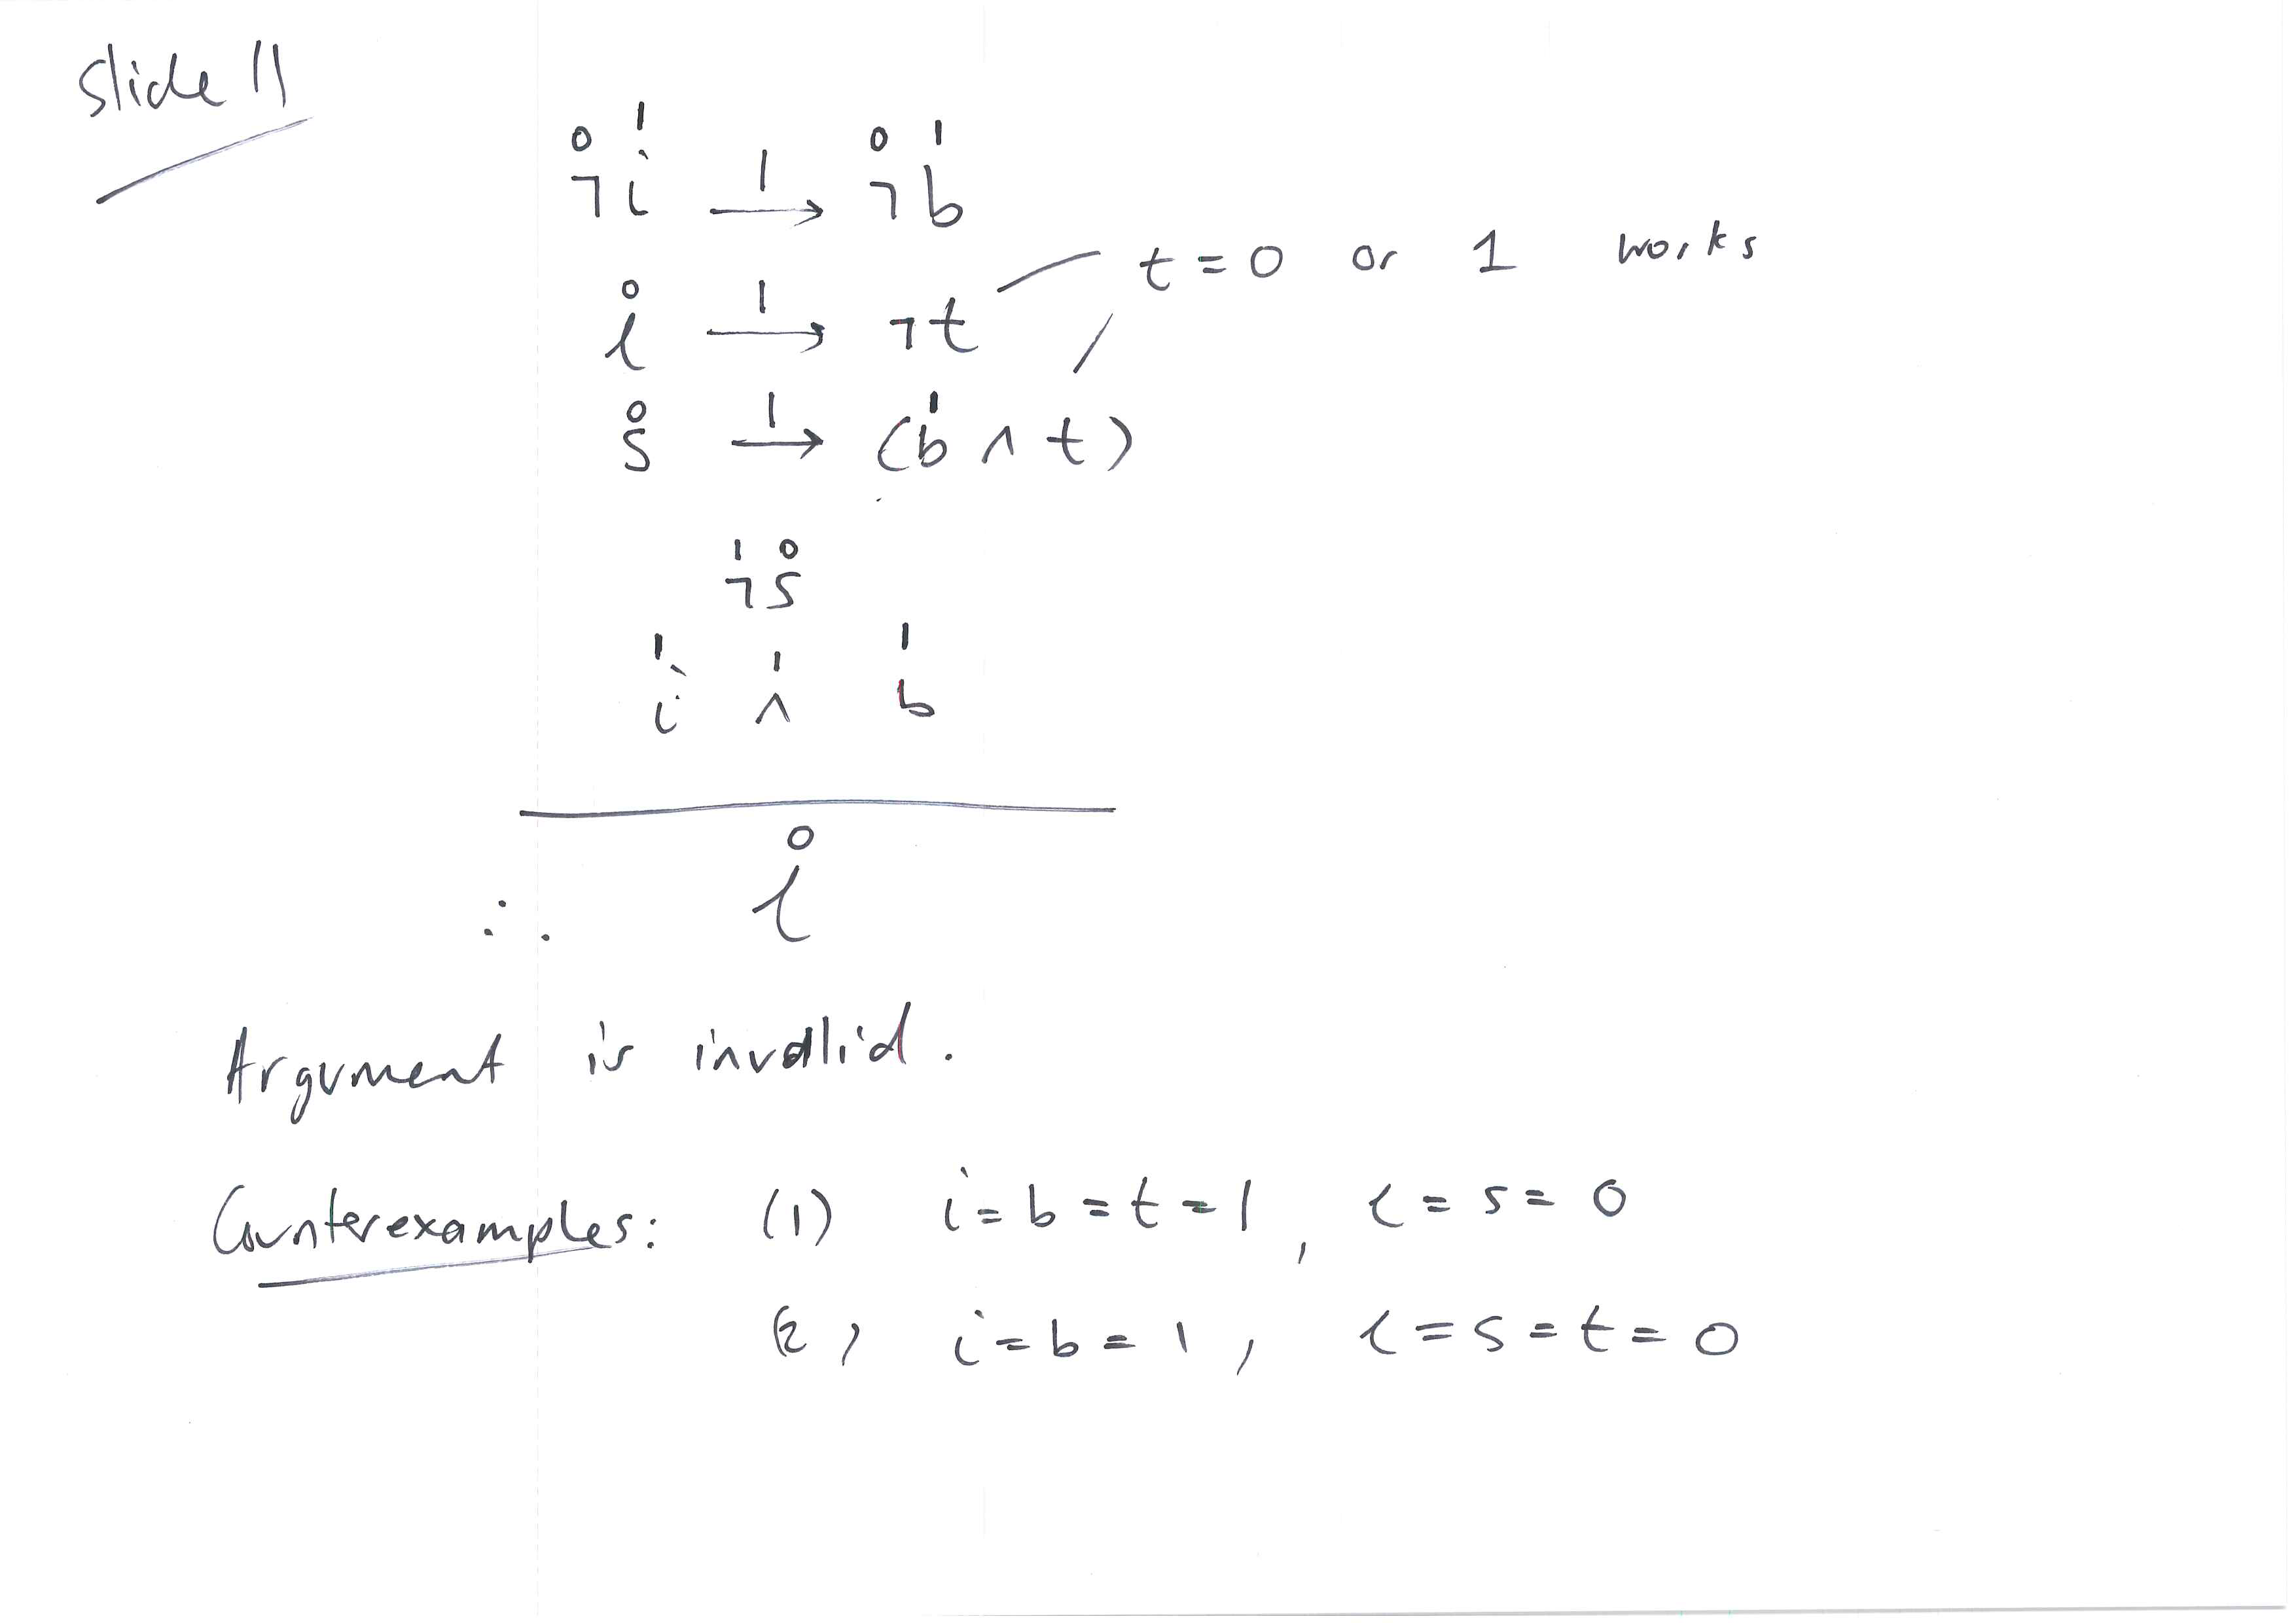 Slide 11
0 1 1 0 1
¬i → ¬b
t = 0 or 1 works
0 1
l → ¬t
0 1 1
s → (b ∧ t)
1 0
¬s
1 1 1
i ∧ b
0
∴ l
Argument is invalid.
Counterexamples: (1) i = b = t = 1, l = s = 0
(2) i = b = 1, l = s = t = 0